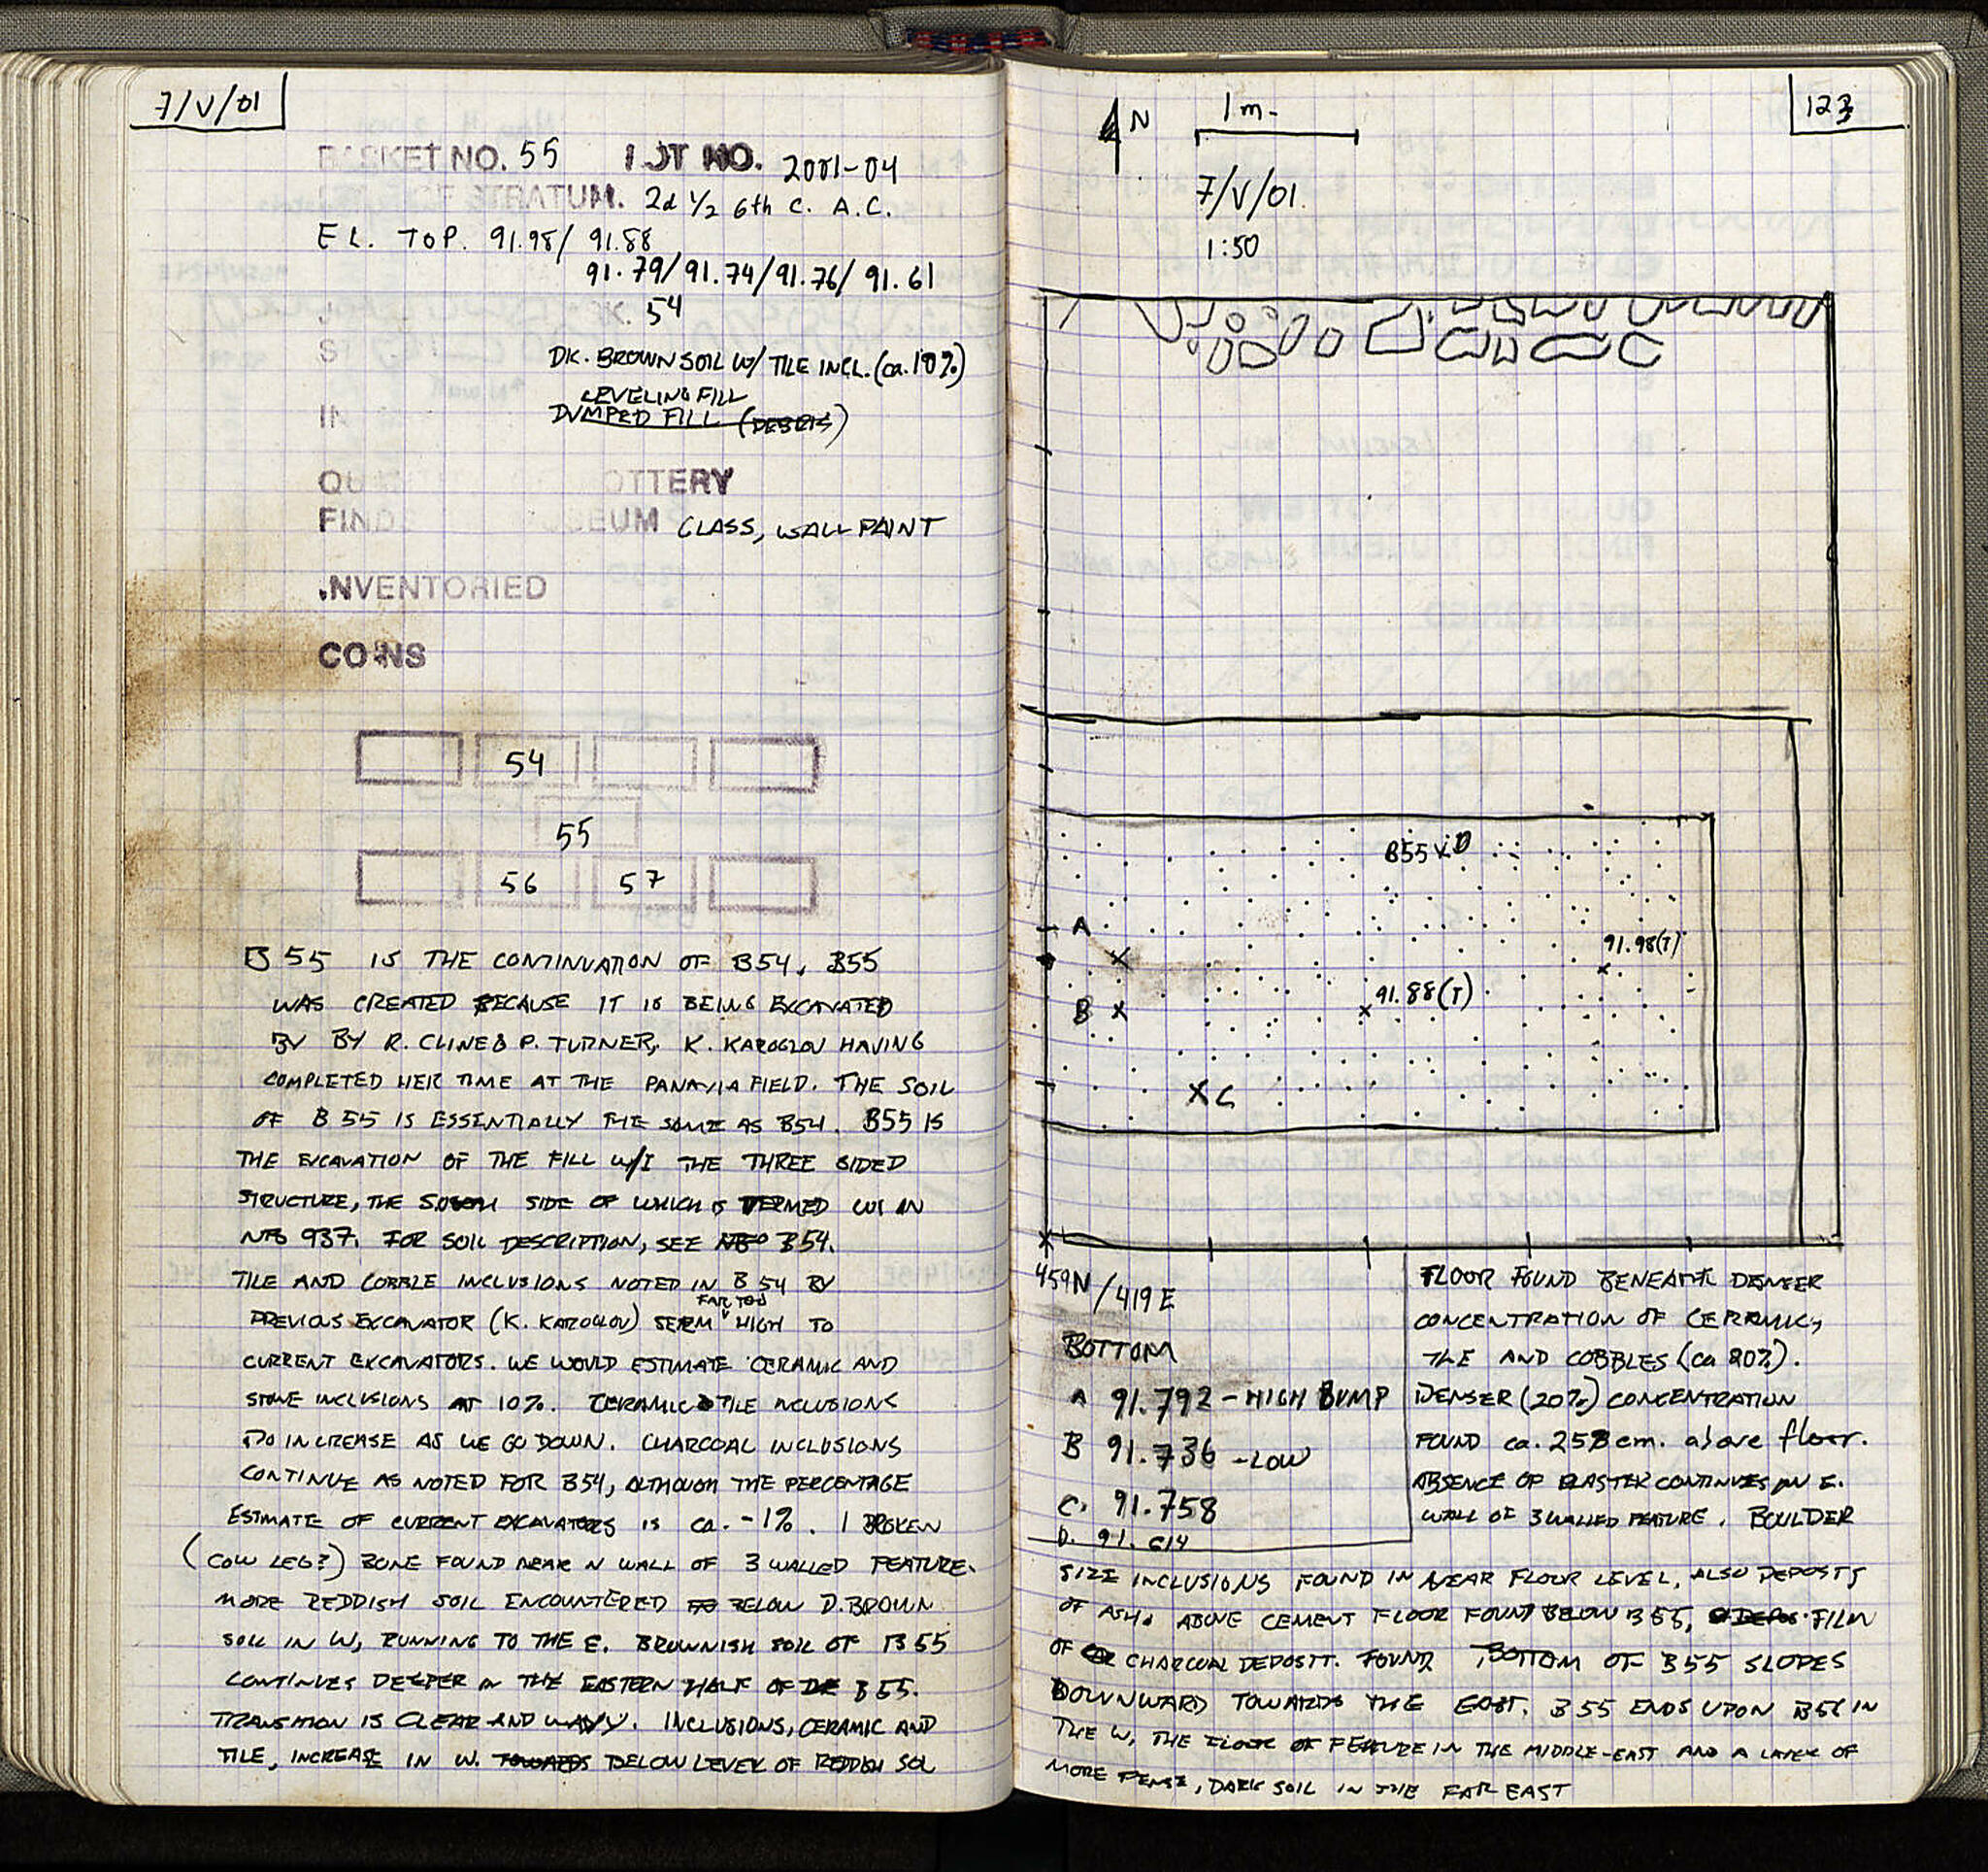 7/V/01
BASKET NO. 55 LOT NO. 2001-04
STRATUM. 2d 1/2 6th C. A.C.
EL. TOP. 91.98/ 91.88
91.79/91.74/91.76/ 91.61
54
DK. BROWN SOIL W/ TILE INCL. (ca. 10%)
LEVELING FILL
DUMPED FILL (DEBRIS)
POTTERY
FINDS MUSEUM GLASS, WALL PAINT
INVENTORIED
COINS
54
55
56 57
B 55 IS THE CONTINUATION OF B54. B55
WAS CREATED BECAUSE IT IS BEING EXCAVATED
BY BY R. CLINE & P. TURNER, K. KAROGLOU HAVING
COMPLETED HER TIME AT THE PANAYIA FIELD. THE SOIL
OF B 55 IS ESSENTIALLY THE SAME AS B54. B55 IS
THE EXCAVATION OF THE FILL W/I THE THREE SIDED
STRUCTURE, THE SOUTH SIDE OF WHICH IS TERMED IN
NTB 937. FOR SOIL DESCRIPTION, SEE B54.
TILE AND COBBLE INCLUSIONS NOTED IN B 54 BY
PREVIOUS EXCAVATOR (K. KAROGLOU) SEEM FAR TOO HIGH TO
CURRENT EXCAVATORS. WE WOULD ESTIMATE CERAMIC AND
STONE INCLUSIONS AT 10%. CERAMIC & TILE INCLUSIONS
DO INCREASE AS WE GO DOWN. CHARCOAL INCLUSIONS
CONTINUE AS NOTED FOR B54, ALTHOUGH THE PERCENTAGE
ESTIMATE OF CURRENT EXCAVATORS IS ca. -1%. 1 BROKEN
(COW LEG?) BONE FOUND NEAR N WALL OF 3 WALLED FEATURE.
MORE REDDISH SOIL ENCOUNTERED BELOW D. BROWN
SOIL IN W, RUNNING TO THE E. BROWNISH SOIL OF B55
CONTINUES DEEPER IN THE EASTERN HALF OF B55.
TRANSITION IS CLEAR AND WAVY. INCLUSIONS, CERAMIC AND
TILE, INCREASE IN W. TOWARDS BELOW LEVEL OF REDDISH SOIL
123
N 1 m.
7/V/01
1:50
B55 x D
A
91.98(T)
91.88(T)
B
C
459N/419E
BOTTOM
A 91.792 - HIGH BUMP
B 91.736 - LOW
C. 91.758
D. 91.614
FLOOR FOUND BENEATH DENSER
CONCENTRATION OF CERAMIC,
TILE AND COBBLES (ca 20%).
DENSER (20%) CONCENTRATION
FOUND ca. 25 cm. above floor.
ABSENCE OF PLASTER CONTINUES ON E.
WALL OF 3 WALLED FEATURE. BOULDER
SIZE INCLUSIONS FOUND IN NEAR FLOOR LEVEL, ALSO DEPOSITS
OF ASH. ABOVE CEMENT FLOOR FOUND BELOW B55, FILM
OF CHARCOAL DEPOSIT. FOUND BOTTOM OF B55 SLOPES
DOWNWARD TOWARDS THE EAST. B55 ENDS UPON B56 IN
THE W, THE FLOOR OF FEATURE IN THE MIDDLE-EAST AND A LAYER OF
MORE DENSE, DARK SOIL IN THE FAR EAST